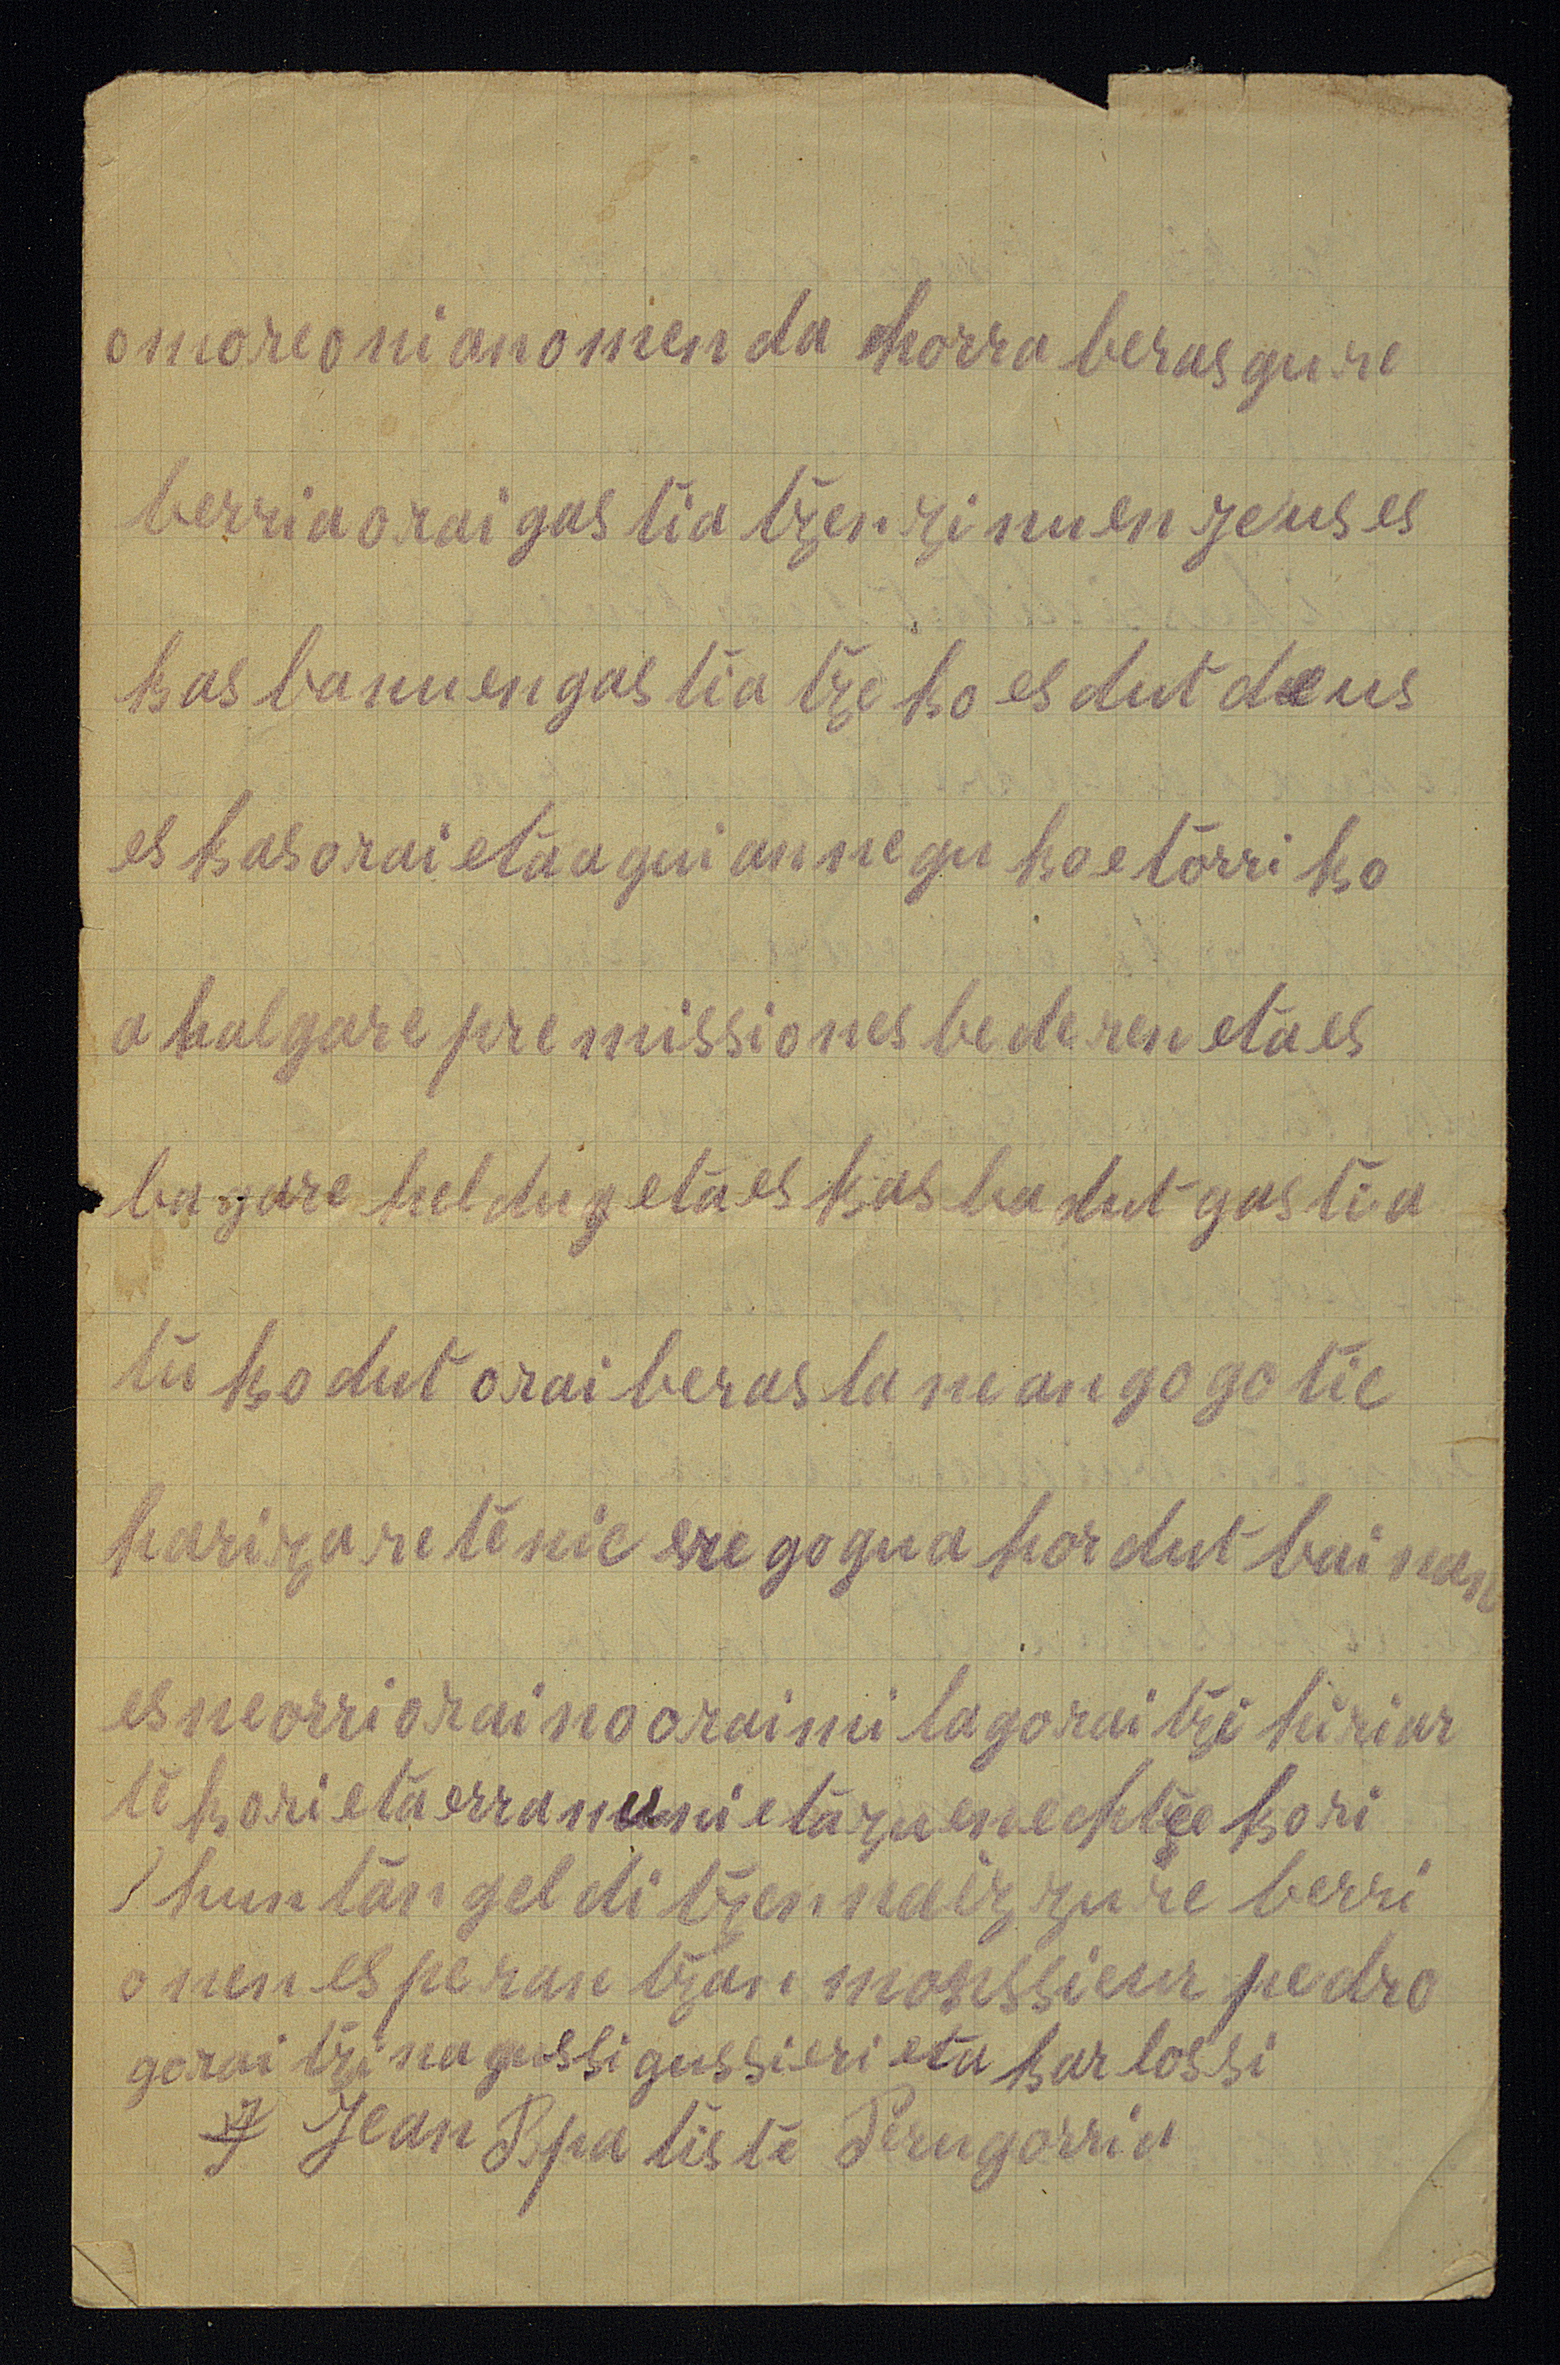 omoreonianomen da horra berasgure
berriaoraigas tia tzen zi nuen zeus es
kas banuengas tia tze ko es dut deus
es kasorai eta agui annegu koetorri ko
a halgare pre missiones bederen eta es
bagare heldu eta es kas ba dut gas tia
tu ko dut orai beras la ne an go go tic
hari za re tenic ere gogua hor dut bai nan
esneorriorainooraimi lagorai tze hiriar
te kori eta erran eta zu
hun tan gel di tzen naiz zure berri
onen esperan tzan monssieur pedro
gorai tzi na gussigussieri eta kar lossi
Jean Bpa tis te Perugorria